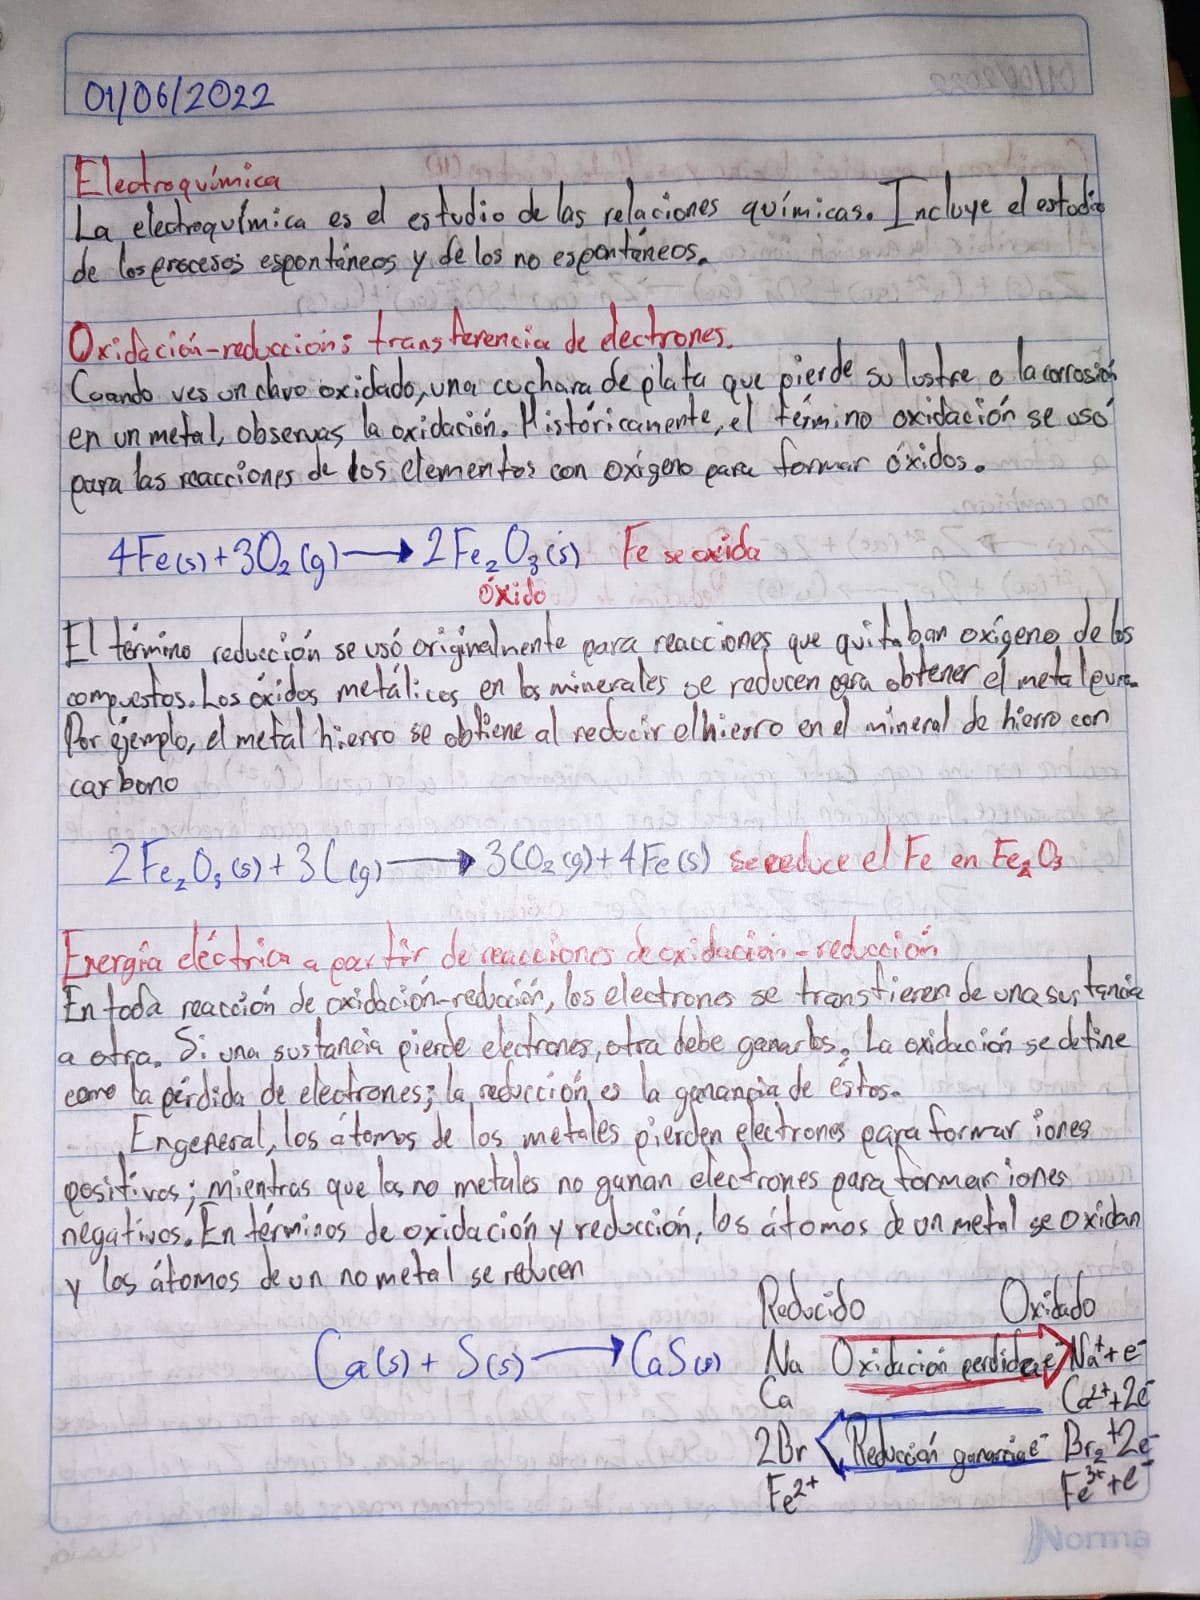 01/06/2022
Electroquímica
La electroquímica es el estudio de las relaciones químicas. Incluye el estudio
de los procesos espontáneos y de los no espontáneos.
Oxidación-reducción: transferencia de electrones.
Cuando ves un clavo oxidado, una cuchara de plata que pierde su lustre o la corrosión
en un metal, observas la oxidación. Históricamente, el término oxidación se usó
para las reacciones de los elementos con oxígeno para formar óxidos.
4Fe(s) + 3O₂(g) → 2Fe₂O₃(s) Fe se oxida
Óxido
El término reducción se usó originalmente para reacciones que quitaban oxígeno de los
compuestos. Los óxidos metálicos en los minerales se reducen para obtener el metal puro.
Por ejemplo, el metal hierro se obtiene al reducir el hierro en el mineral de hierro con
carbono
2Fe₂O₃(s) + 3C(g) → 3CO₂(g) + 4Fe(s) se reduce el Fe en Fe₂O₃
Energía eléctrica a partir de reacciones de oxidación-reducción
En toda reacción de oxidación-redución, los electrones se transfieren de una sustancia
a otra. Si una sustancia pierde electrones, otra debe ganarlos. La oxidación se define
como la pérdida de electrones; la reducción es la ganancia de éstos.
En general, los átomos de los metales pierden electrones para formar iones
positivos; mientras que los no metales no ganan electrones para formar iones
negativos. En términos de oxidación y reducción, los átomos de un metal se oxidan
y los átomos de un no metal se reducen
Reducido Oxidado
Ca(s) + S(s) → CaS(s) Na Oxidación perdida e⁻ Na⁺ + e⁻
Ca Ca²⁺ + 2e⁻
2Br Reducción ganancia e⁻ Br₂ + 2e⁻
Fe²⁺ Fe³⁺ + e⁻
Norma